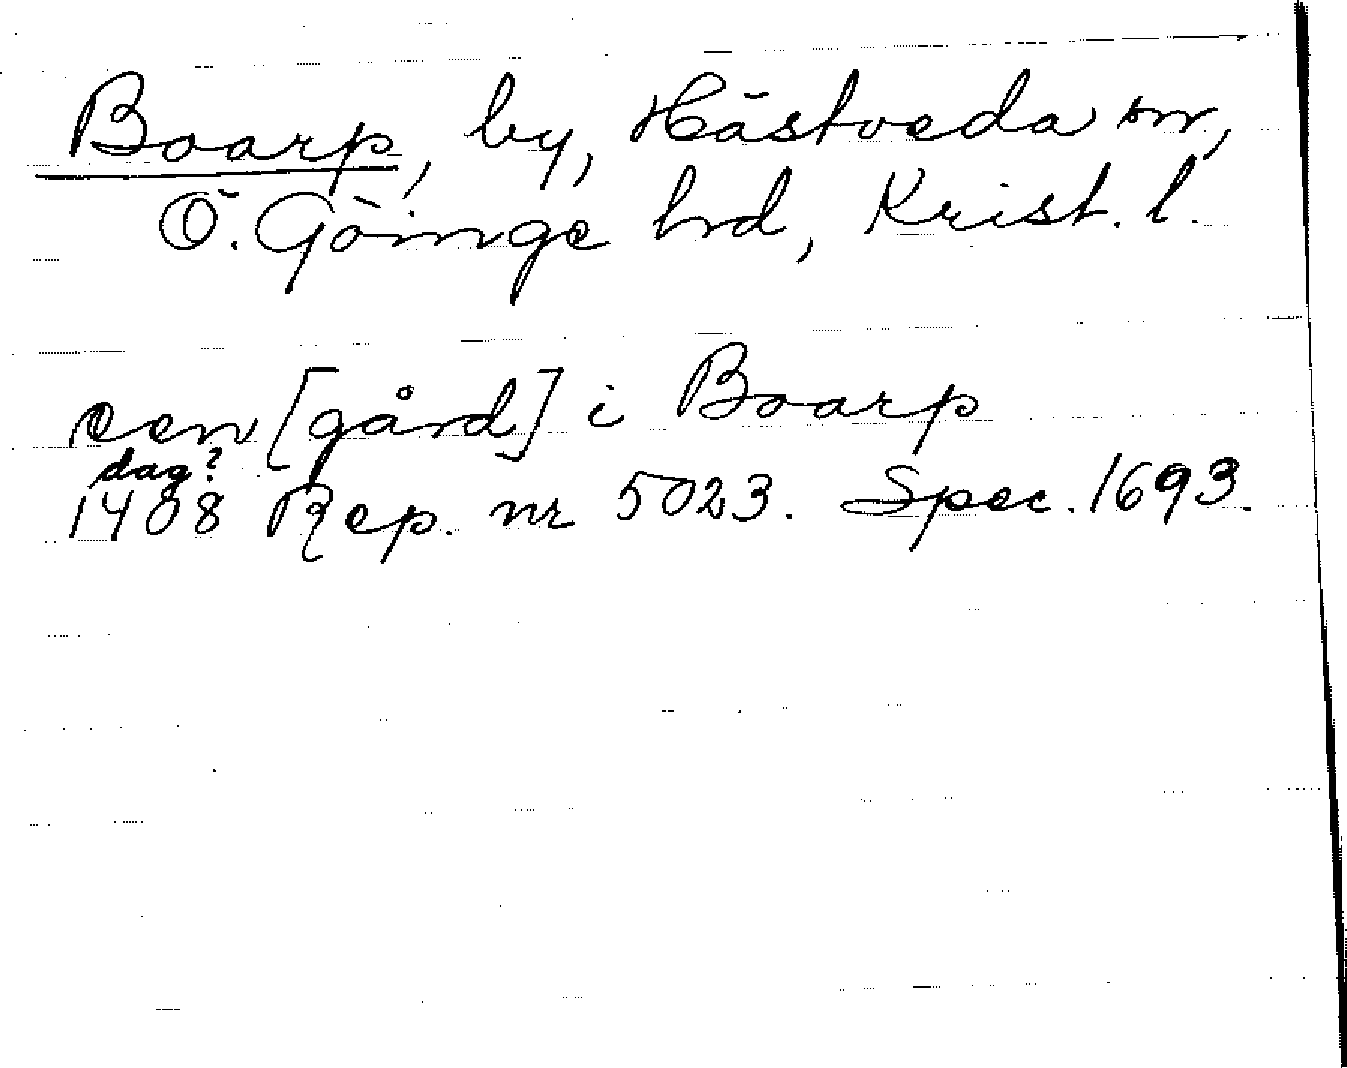 Boarp, by, Hästveda sn,
Ö. Göinge hd, Krist. l.
een [gård] i Boarp
dag?
1408 Rep. nr 5023. Spec. 1693.